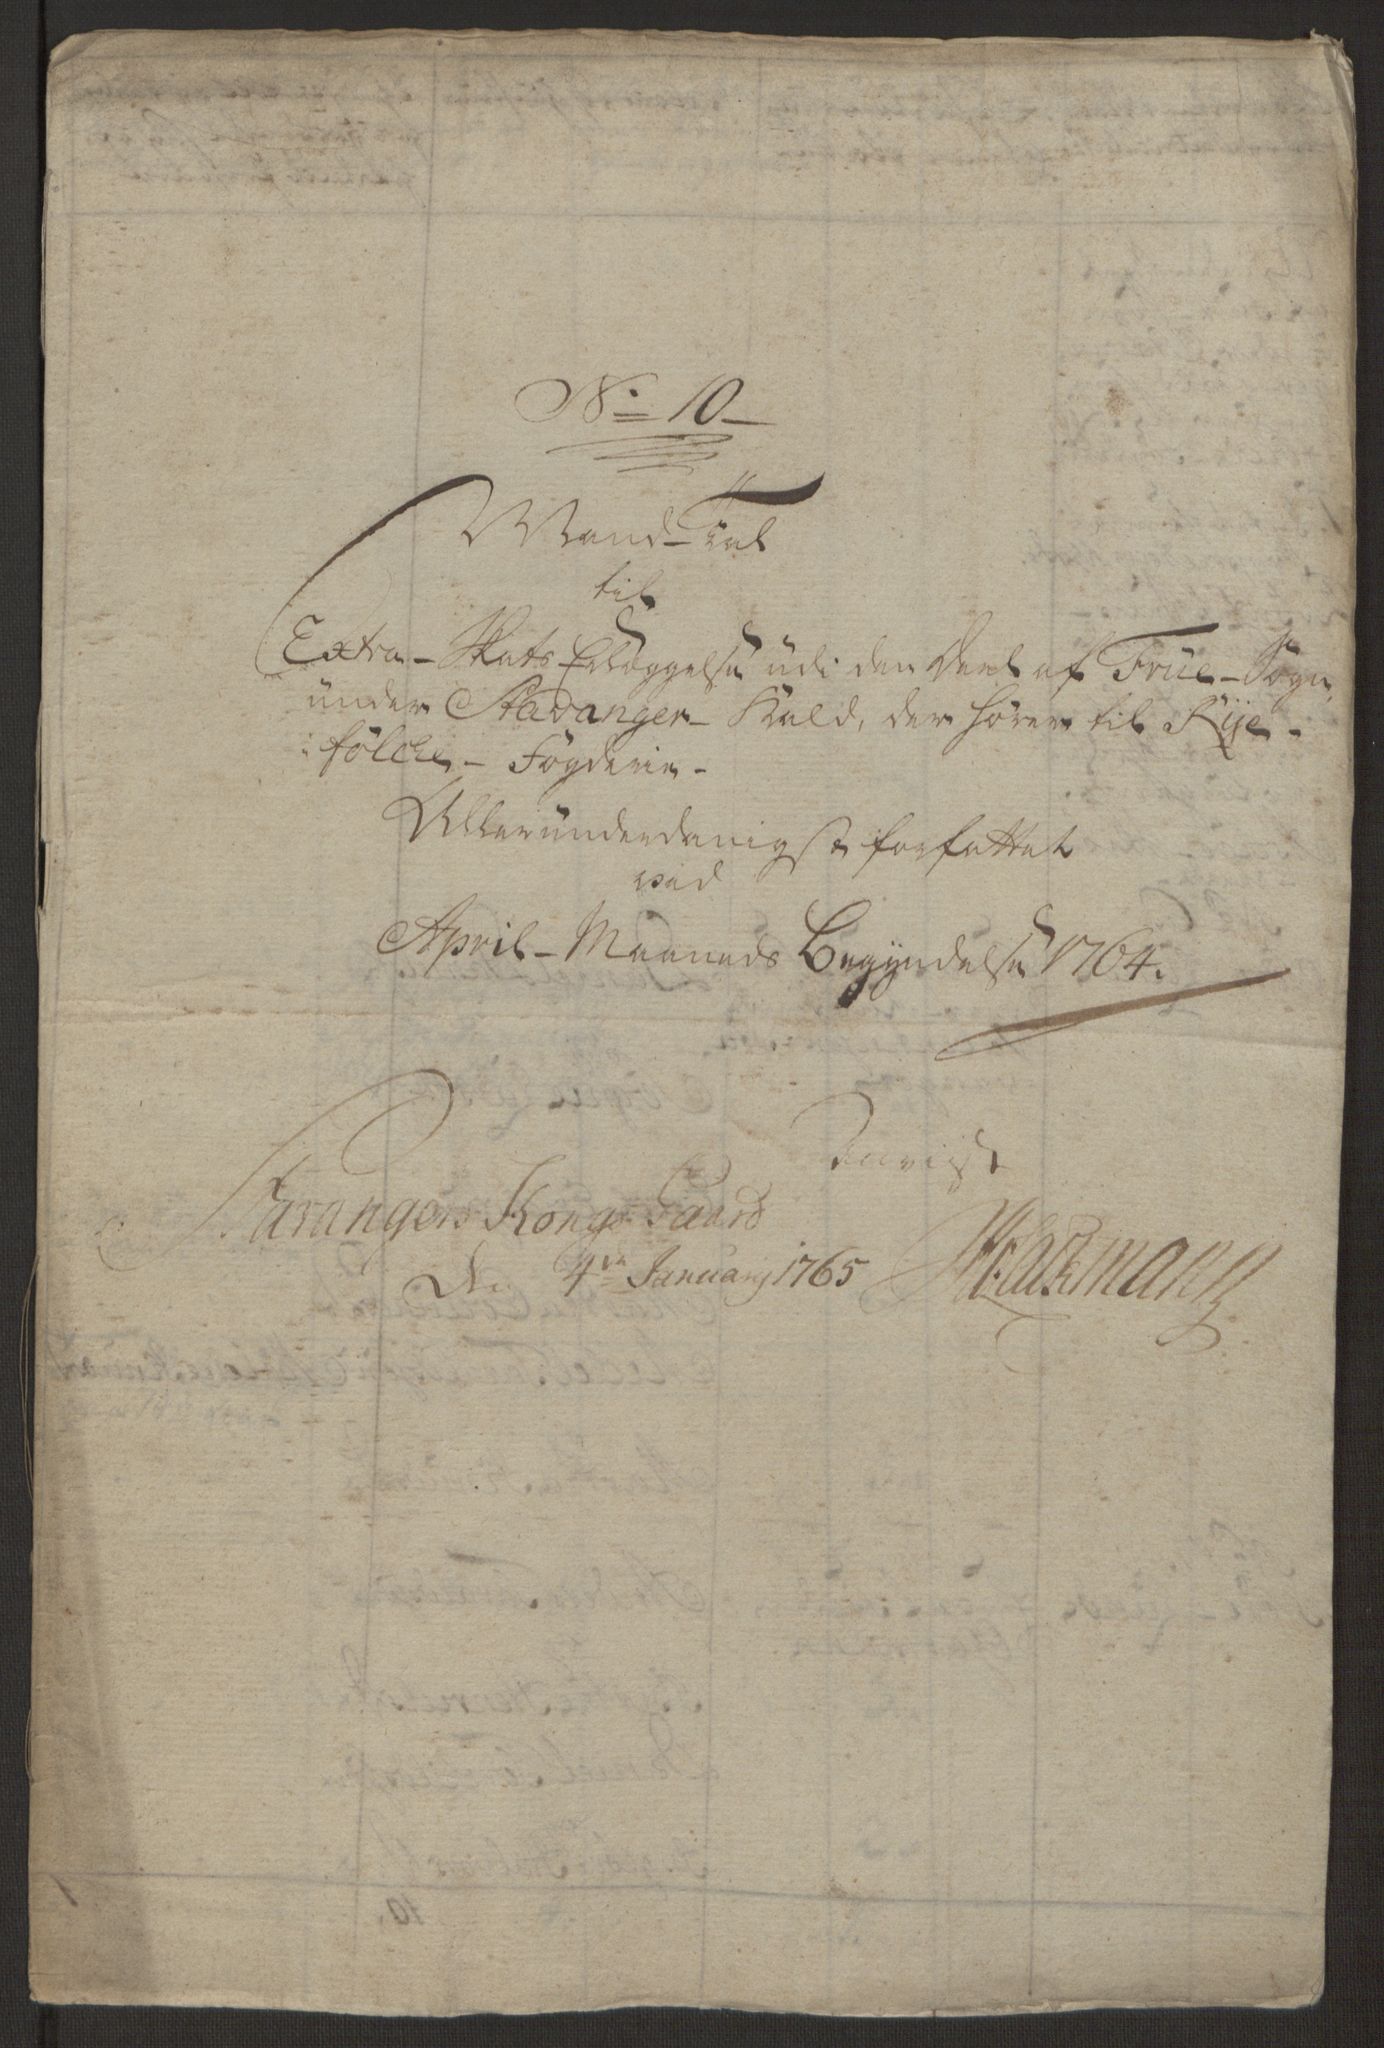 No 10
Mand-Tal
til
Extra-Skats Erlæggelse udi den Deel af Frue-Sogn,
under Stavanger-Kald, der hører til Rye-
fölcke-Fogderie-
Allerunderdanigst forfattet
ved
April-Maaneds Begyndelse 1764.
Revist
Stavangers Kongs Gaard
Den 4de January 1765